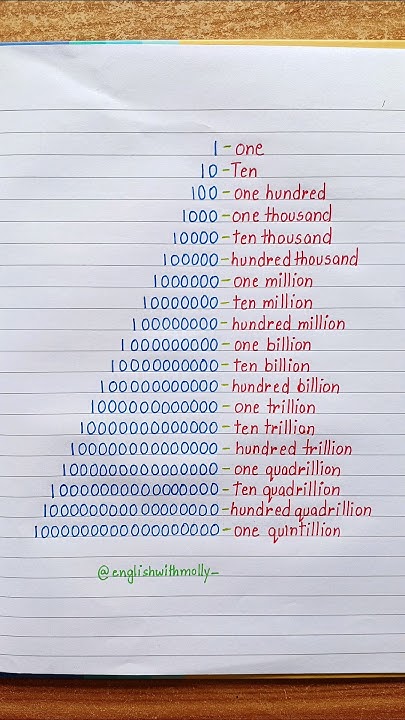 1 - one
10 - Ten
100 - one hundred
1000 - one thousand
10000 - ten thousand
100000 - hundred thousand
1000000 - one million
10000000 - ten million
100000000 - hundred million
1000000000 - one billion
10000000000 - ten billion
100000000000 - hundred billion
1000000000000 - one trillion
10000000000000 - ten trillian
100000000000000 - hundred trillion
1000000000000000 - one quadrillion
10000000000000000 - ten quadrillion
100000000000000000 - hundred quadrillion
1000000000000000000 - one quintillion
@englishwithmolly_